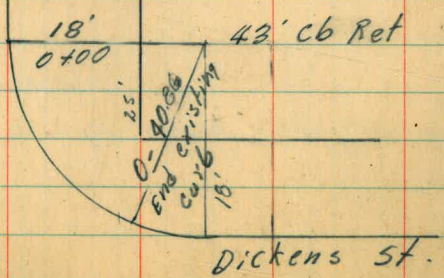 18' 43' Cb Ret
0+00
25'
0-40.86
End existing
curb
18'
Dickens St.